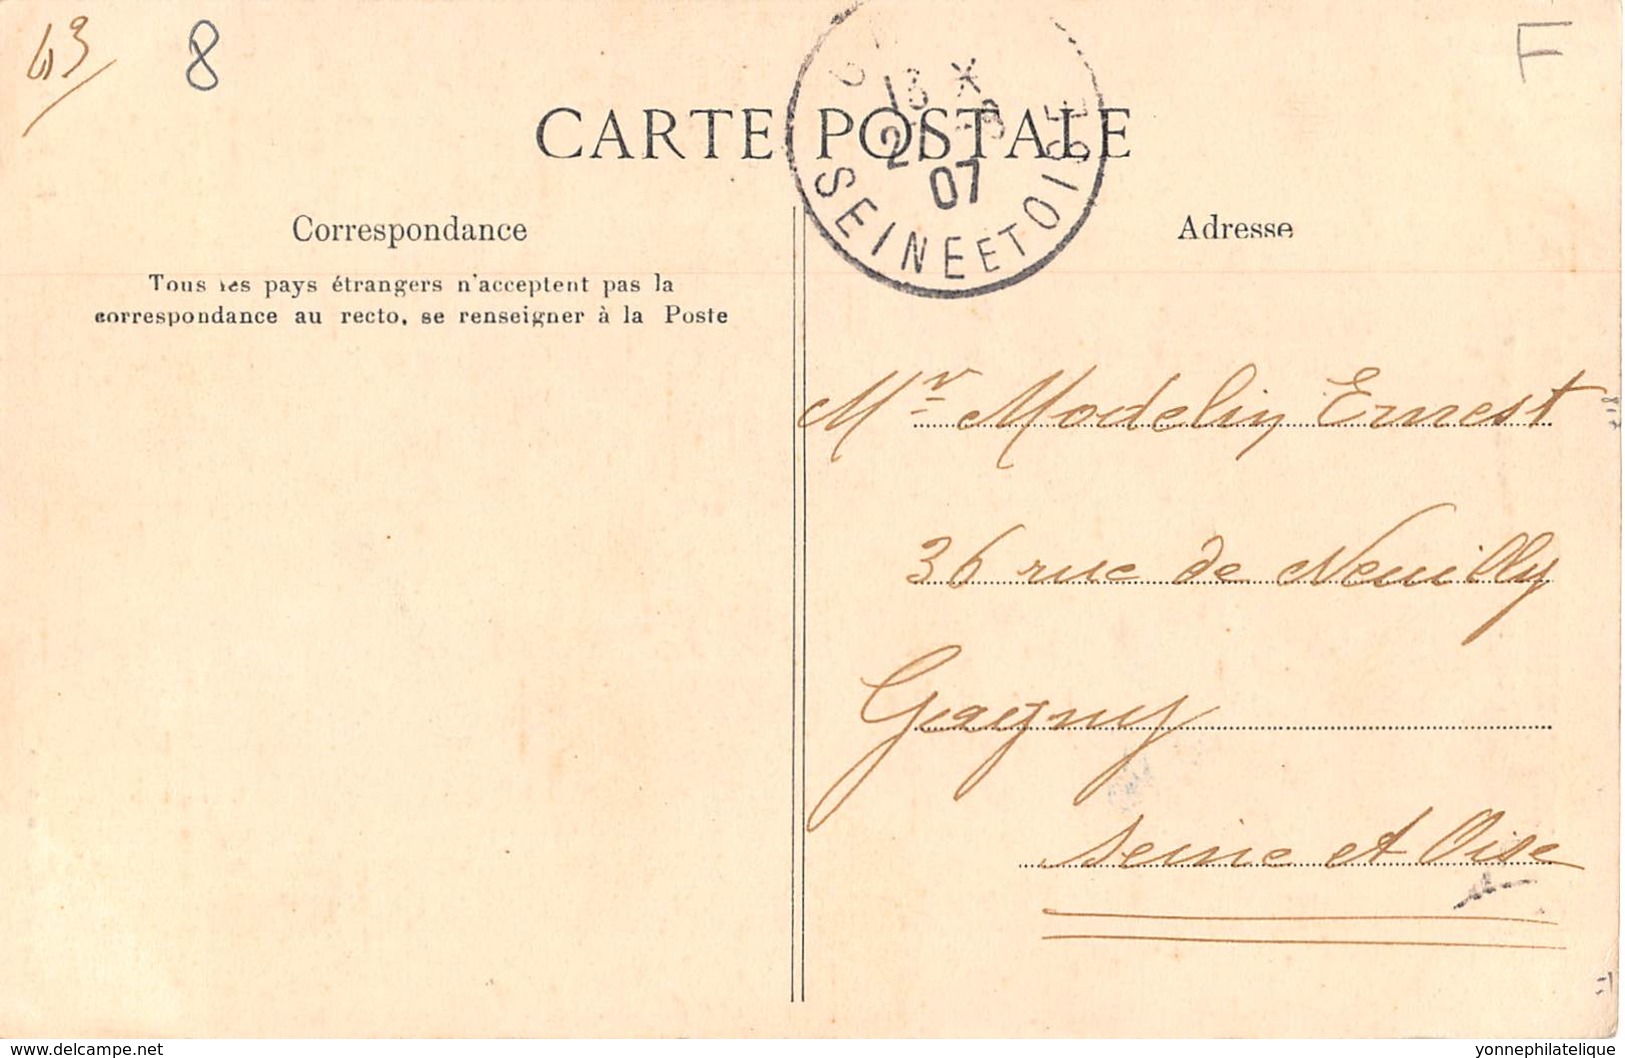 43
8
F
CARTE POSTALE
13 *
2 - 8
07
SEINE ET OISE
Correspondance
Adresse
Tous les pays étrangers n'acceptent pas la
correspondance au recto, se renseigner à la Poste
Mr Modelin Ernest
36 rue de Neuilly
Gagny
Seine et Oise
www.delcampe.net
yonnephilatelique